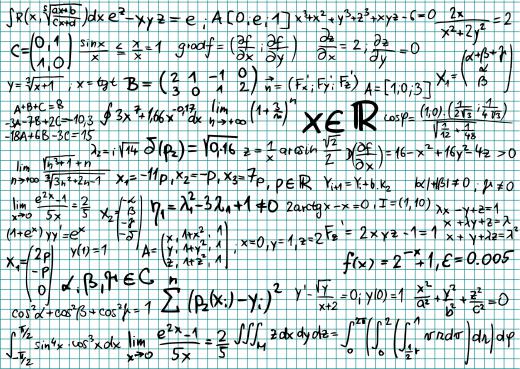 ∫R(x, ⁵√((ax+b)/(cx+d)))dx e^z - xyz = e ; A[0, e, 1] x³+x²+y³+z³+xyz-6=0 2x/(x²+2y²) = 2
C = (0, 1 / 1, 0) sin x/x ≤ x/x = 1 grad f = (∂f/∂x ; ∂f/∂y) ∂z/∂x = 2 ; ∂z/∂y = 0
y = ³√(x+1) ; x = tg t B = (2 1 -1 0 / 3 0 1 2) n⃗ = (F'x ; F'y ; F'z) A = [1, 0, 3] X₁ = (α+β+γ / α / β)
A+B+C = 8
-3A-7B+2C = -10,3
-18A+6B-3C = 15
∮3x⁷+1,66x^(-0,17) dx lim n→+∞ (1+3/n)ⁿ x∈ℝ cos φ = (1,0)·(1/(2√3) ; 4/√3) / √(1/12 + 1/48)
λ₂ = i√14 δ(p₂) = √0,16 z = 1/x arcsin √2/2 (∂f/∂x) = 16-x²+16y²-4z > 0
lim n→∞ x₁ = -11p, x₂ = -p, x₃ = 7p, p∈ℝ |α|+|β| ≠ 0 , γ ≠ 0
lim x→0 (e^(2x)-1)/5x = 2/5 η₁ = λ₁²-3λ₁+1 ≠ 0 2arctg x - x = 0 , I = (1, 10)
λx - y + z = 1
x + λy + z = λ
x + y + λz = λ²
(1+e^x) yy' = e^x y(1) = 1 ; x=0, y=1, z=2 F'z = 2xyz-1 = 1
X₁ = (2p / -p / 0) α, β, γ ∈ C f(x) = 2^(-x)+1, ε = 0.005
cos²α + cos²β + cos²γ = 1 Σ n (p₂(xᵢ) - yᵢ)² y' - √y/(x+2) = 0 ; y(0) = 1 x²/a² + y²/b² + z²/c² = 0
∫ π/2 -π/2 sin⁴x · cos³x dx lim x→0 (e^(2x)-1)/5x = 2/5 ∭M z dx dy dz =